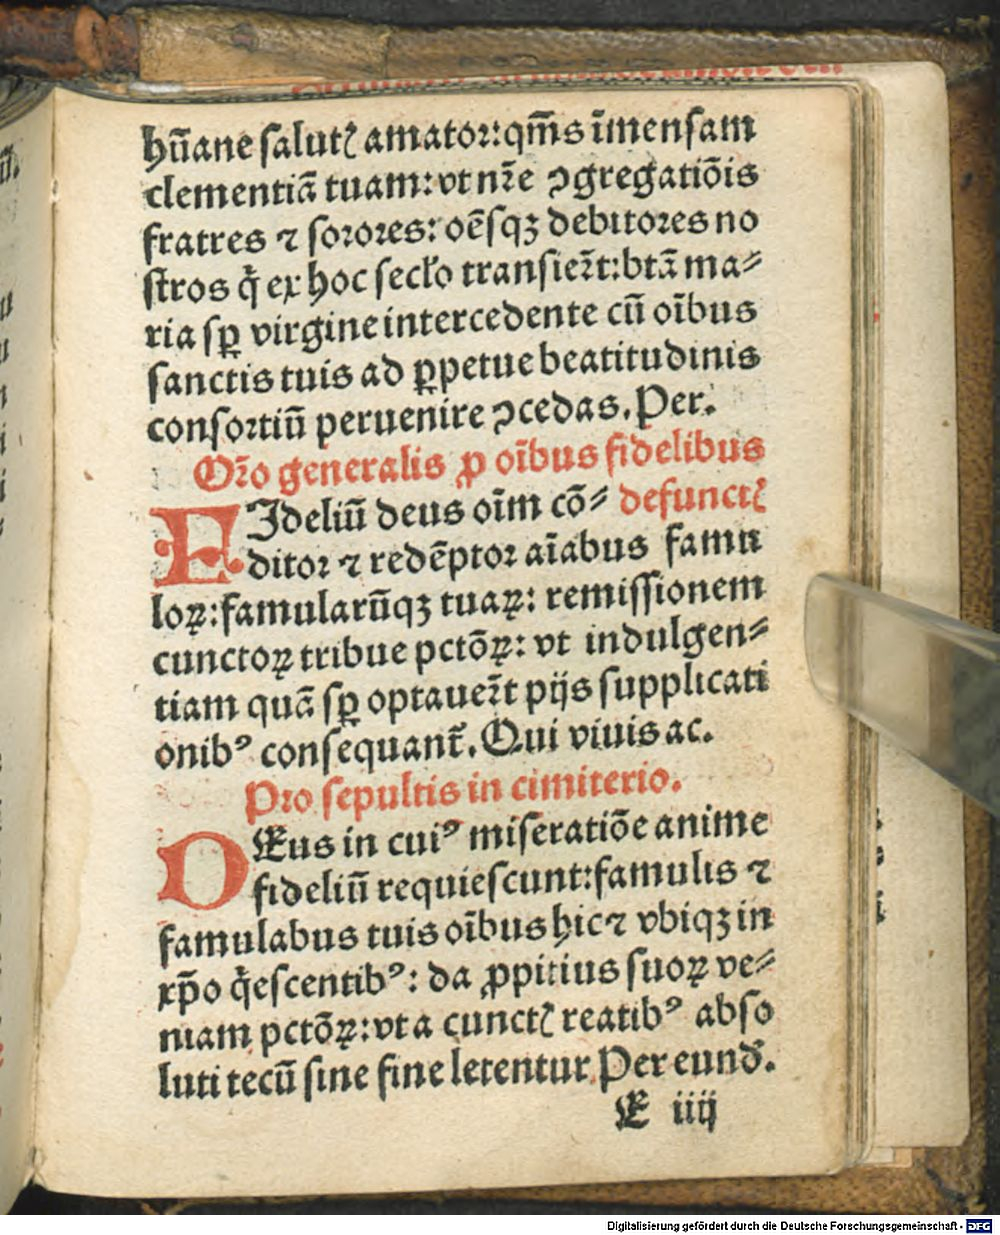 hūane salutꝭ amator: qm̄s īmensam
clementiā tuam: vt nr̄e ꝯgregatiōis
fratres ⁊ sorores: oēsqꝫ debitores no
stros q̇ ex hoc secl̄o transier̄t: btā ma⸗
ria sꝑ virgine intercedente cū oībus
sanctis tuis ad ꝑpetue beatitudinis
consortiū peruenire ꝯcedas. Per.
Or̄o generalis ꝓ oībus fidelibus
defunctꝭ
FIdeliū deus oīm cō⸗
ditor ⁊ redēptor aīabus famu
loꝝ: famularūqꝫ tuaꝝ: remissionem
cunctoꝝ tribue pctōꝝ: vt indulgen⸗
tiam quā sꝑ optauer̄t pijs supplicati
onibꝰ consequant̄. Qui viuis ac.
Pro sepultis in cimiterio.
DEus in cuiꝰ miseratiōe anime
fideliū requiescunt: famulis ⁊
famulabus tuis oībus hic ⁊ vbiqꝫ in
xp̄o q̇escentibꝰ: da ꝓpitius suoꝝ ve⸗
niam pctōꝝ: vt a cunctꝭ reatibꝰ abso
luti tecū sine fine letentur Per eund̄.
E iiij
Digitalisierung gefördert durch die Deutsche Forschungsgemeinschaft - DFG